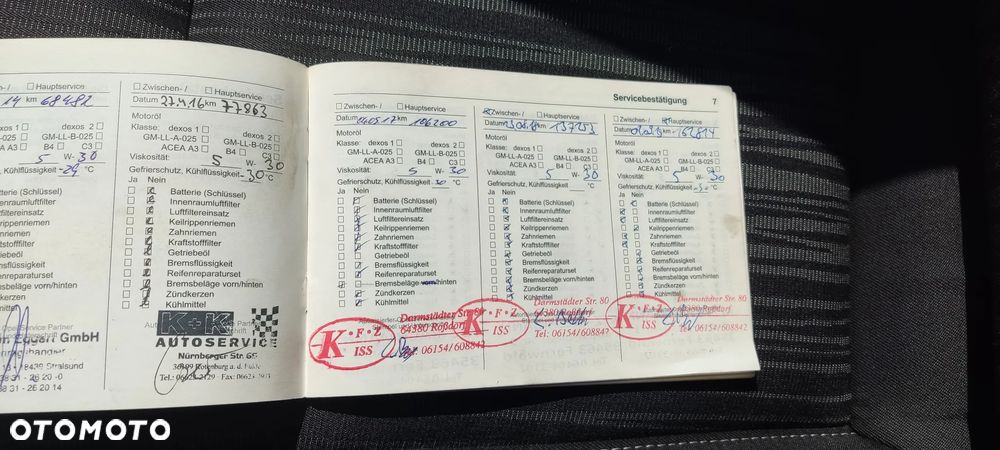 Servicebestätigung 7
Zwischen- / Hauptservice
14 km 68482
dexos 1 dexos 2
GM-LL-A-025 GM-LL-B-025
ACEA A3 B4 C3
5 W- 30
Kühlflüssigkeit
Batterie (Schlüssel)
Innenraumluftfilter
Luftfiltereinsatz
Keilrippenriemen
Zahnriemen
Kraftstofffilter
Getriebeöl
Bremsflüssigkeit
Reifenreparaturset
Bremsbeläge vorn/hinten
Zündkerzen
Kühlmittel
Opel Service Partner
Eggert GmbH
18439 Stralsund
Zwischen- / Hauptservice
Datum 27.4.16 km 77863
Motoröl
Klasse: dexos 1 dexos 2
GM-LL-A-025 GM-LL-B-025
ACEA A3 B4 C3
Viskosität: 5 W- 30
Gefrierschutz, Kühlflüssigkeit -30 °C
Ja Nein
Batterie (Schlüssel)
Innenraumluftfilter
Luftfiltereinsatz
Keilrippenriemen
Zahnriemen
Kraftstofffilter
Getriebeöl
Bremsflüssigkeit
Reifenreparaturset
Bremsbeläge vorn/hinten
Zündkerzen
Kühlmittel
K+K
AUTOSERVICE
Nürnberger Str. 65
36199 Rotenburg a. d. Fulda
Zwischen- / Hauptservice
Datum km 106200
Motoröl
Klasse: dexos 1 dexos 2
GM-LL-A-025 GM-LL-B-025
ACEA A3 B4 C3
Viskosität: 5 W- 30
Gefrierschutz, Kühlflüssigkeit 30 °C
Ja Nein
Batterie (Schlüssel)
Innenraumluftfilter
Luftfiltereinsatz
Keilrippenriemen
Zahnriemen
Kraftstofffilter
Getriebeöl
Bremsflüssigkeit
Reifenreparaturset
Bremsbeläge vorn/hinten
Zündkerzen
Kühlmittel
K·F·Z
ISS
Darmstädter Str. 80
64380 Roßdorf
Tel: 06154/608842
Zwischen- / Hauptservice
Datum km 137253
Motoröl
Klasse: dexos 1 dexos 2
GM-LL-A-025 GM-LL-B-025
ACEA A3 B4 C3
Viskosität: 5 W- 30
Gefrierschutz, Kühlflüssigkeit °C
Ja Nein
Batterie (Schlüssel)
Innenraumluftfilter
Luftfiltereinsatz
Keilrippenriemen
Zahnriemen
Kraftstofffilter
Getriebeöl
Bremsflüssigkeit
Reifenreparaturset
Bremsbeläge vorn/hinten
Zündkerzen
Kühlmittel
K·F·Z
ISS
Darmstädter Str. 80
64380 Roßdorf
Tel: 06154/608842
Zwischen- / Hauptservice
Datum km 162814
Motoröl
Klasse: dexos 1 dexos 2
GM-LL-A-025 GM-LL-B-025
ACEA A3 B4 C3
Viskosität: 5 W- 30
Gefrierschutz, Kühlflüssigkeit °C
Ja Nein
Batterie (Schlüssel)
Innenraumluftfilter
Luftfiltereinsatz
Keilrippenriemen
Zahnriemen
Kraftstofffilter
Getriebeöl
Bremsflüssigkeit
Reifenreparaturset
Bremsbeläge vorn/hinten
Zündkerzen
Kühlmittel
K·F·Z
ISS
Darmstädter Str. 80
06154/608842
OTOMOTO